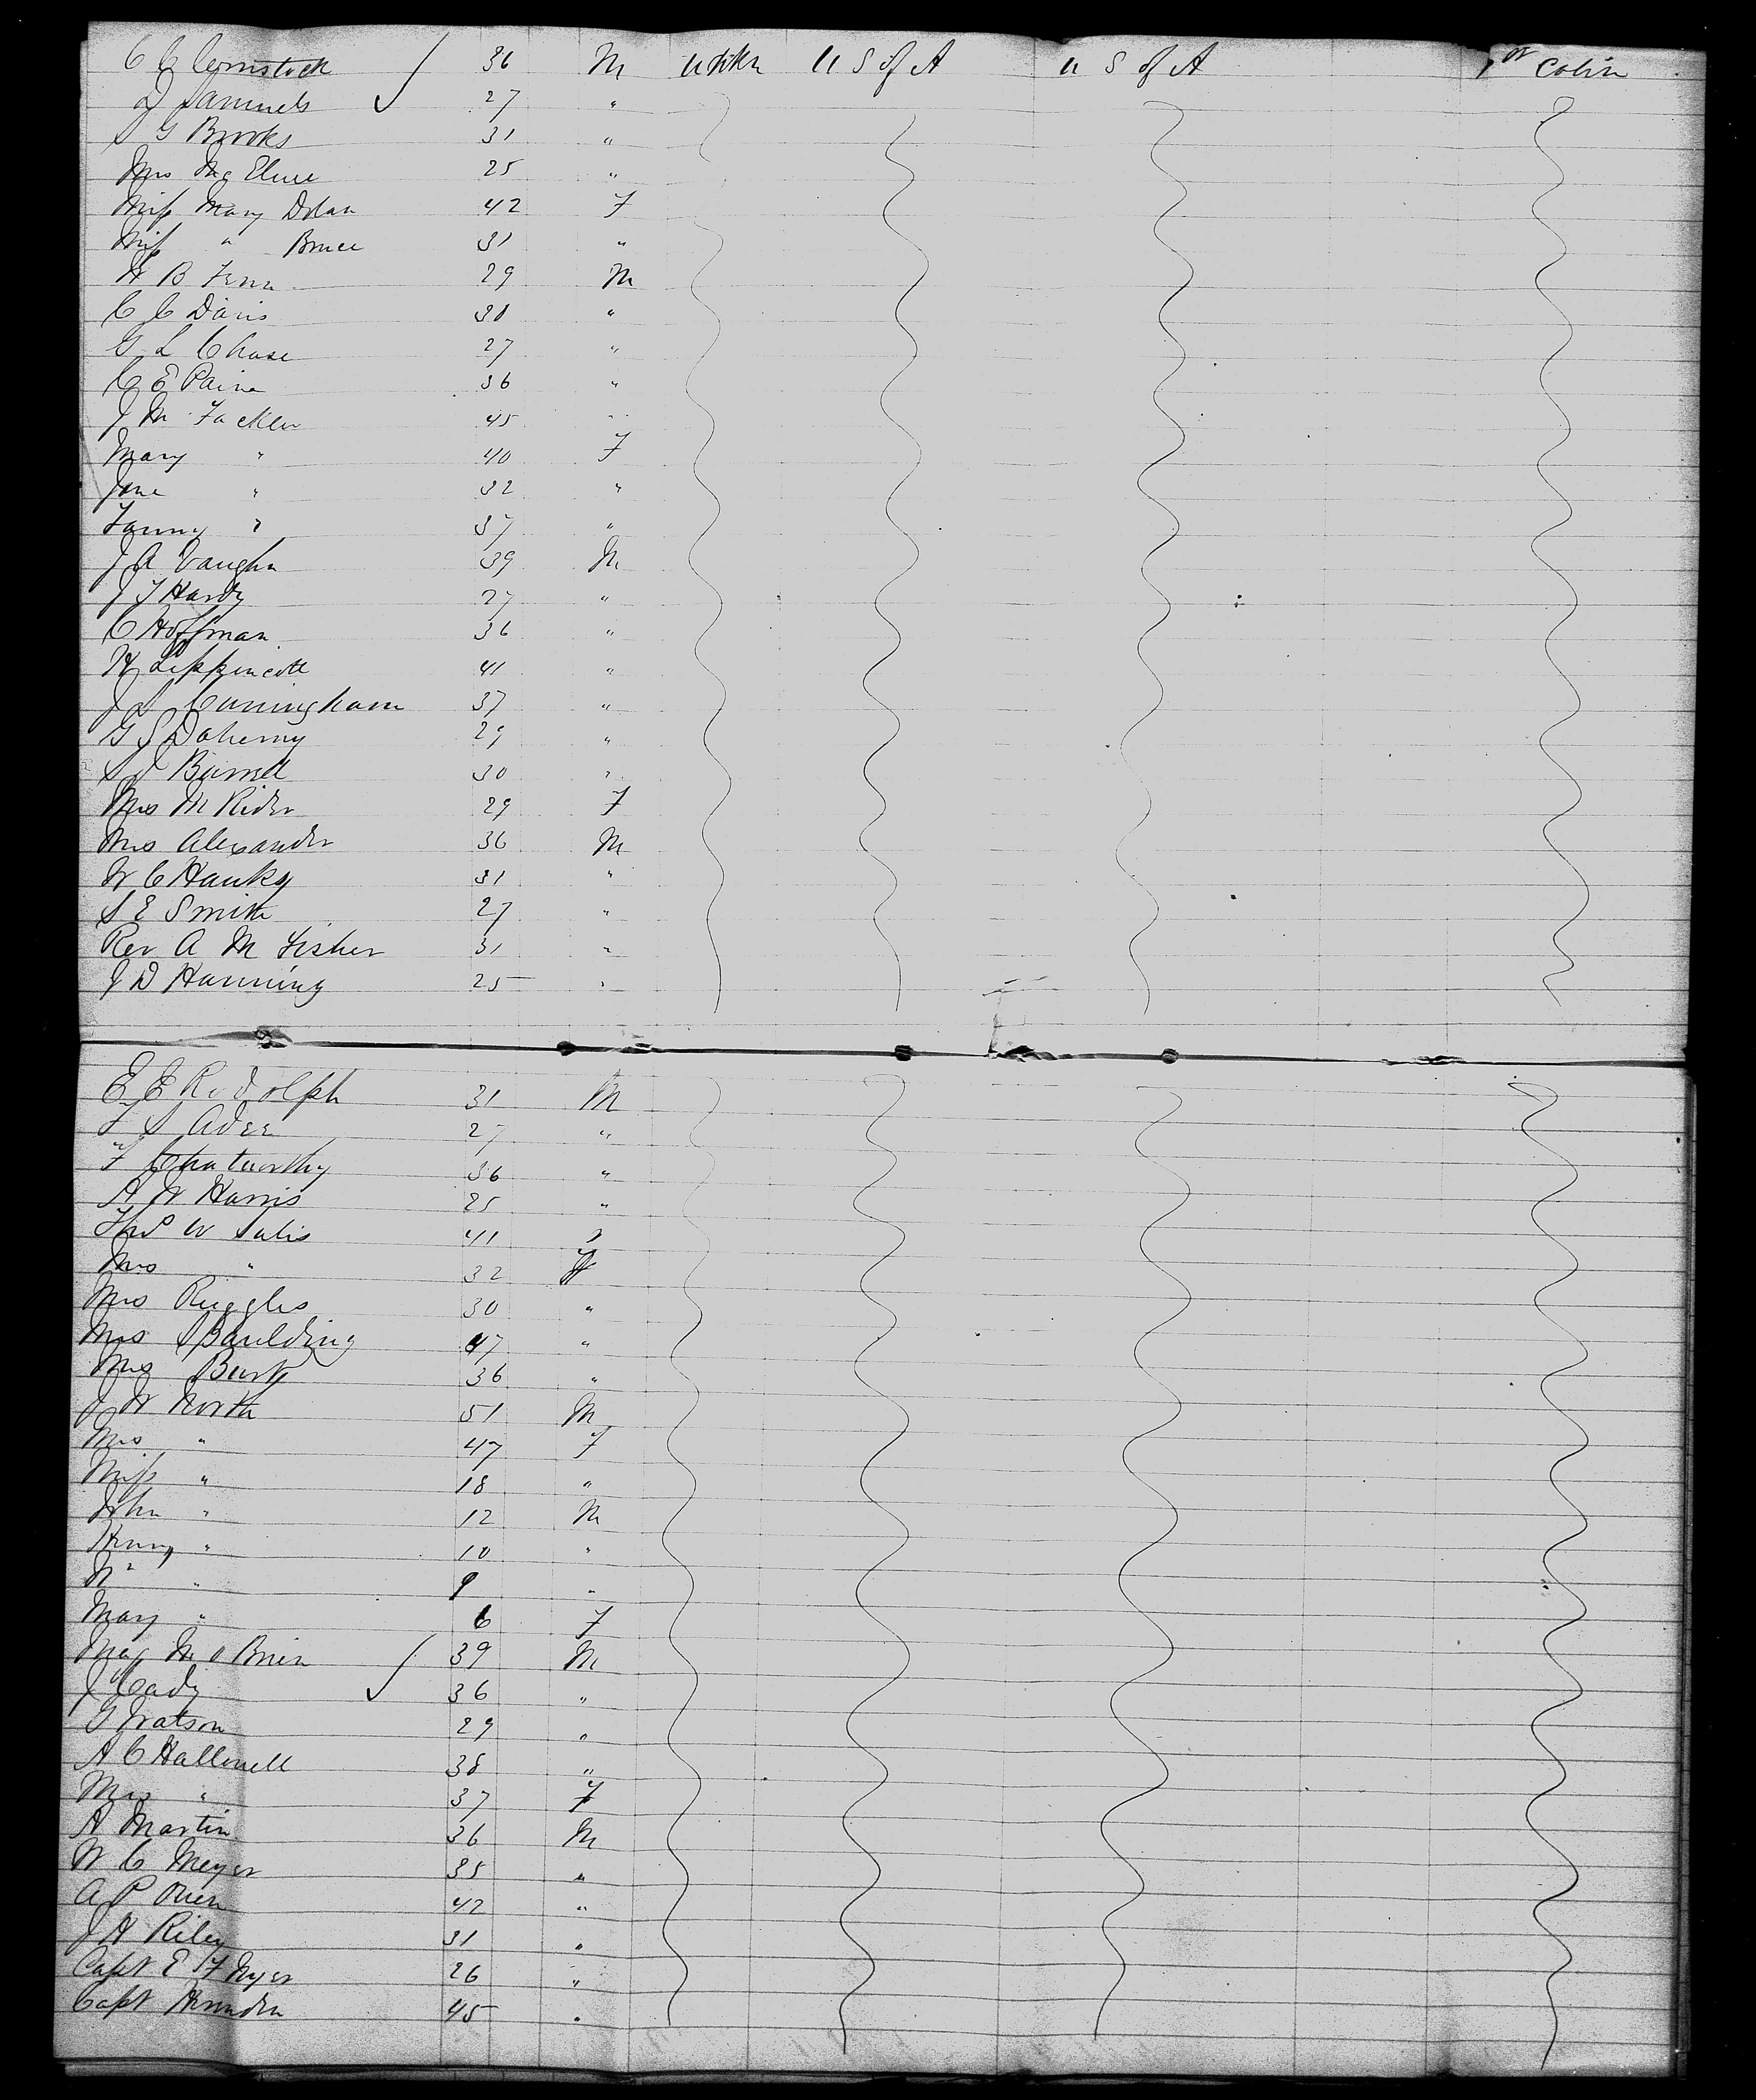 C C Comstock 36 M unkn U S of A U S of A 1st Cabin
D Samuels 27 "
S G Brooks 31 "
Mrs Mc Elure 25 "
Miss Mary Dolan 42 F
Miss " Bruce 31 "
H B Fenn 29 M
C C Davis 30 "
G L Chase 27 "
C E Paine 36 "
J M Fackler 45 "
Mary " 40 F
Jane " 32 "
Fanny " 37 "
J A Vaughn 39 M
J T Hardy 27 "
C Hoffman 36 "
H Lippincott 41 "
J L Cunningham 37 "
G S Doherny 29 "
S J Burrell 30 "
Mrs M Rider 29 F
Mrs Alexander 36 M
W C Hanky 31 "
S E Smith 27 "
Rev A M Fisher 31 "
J D Hanning 25 "
E E Rodolph 31 M
F S Adee 27 "
F Chatworthy 36 "
A W Harris 25 "
Thos W Sulis 41 "
Mrs " 32 F
Mrs Ruggles 30 "
Mrs Spaulding 47 "
Mrs Burt 36 "
J W North 51 M
Mrs " 47 F
Miss " 18 "
John " 12 M
Henry " 10 "
" 9 "
Mary " 6 F
M O Brien 39 M
J Cady 36 "
G Watson 29 "
A C Hallowell 38 "
Mrs " 37 F
A Martin 36 M
W C Meyer 35 "
A P Owen 42 "
J H Riley 31 "
Capt E F Nyer 26 "
Capt Herndon 45 "